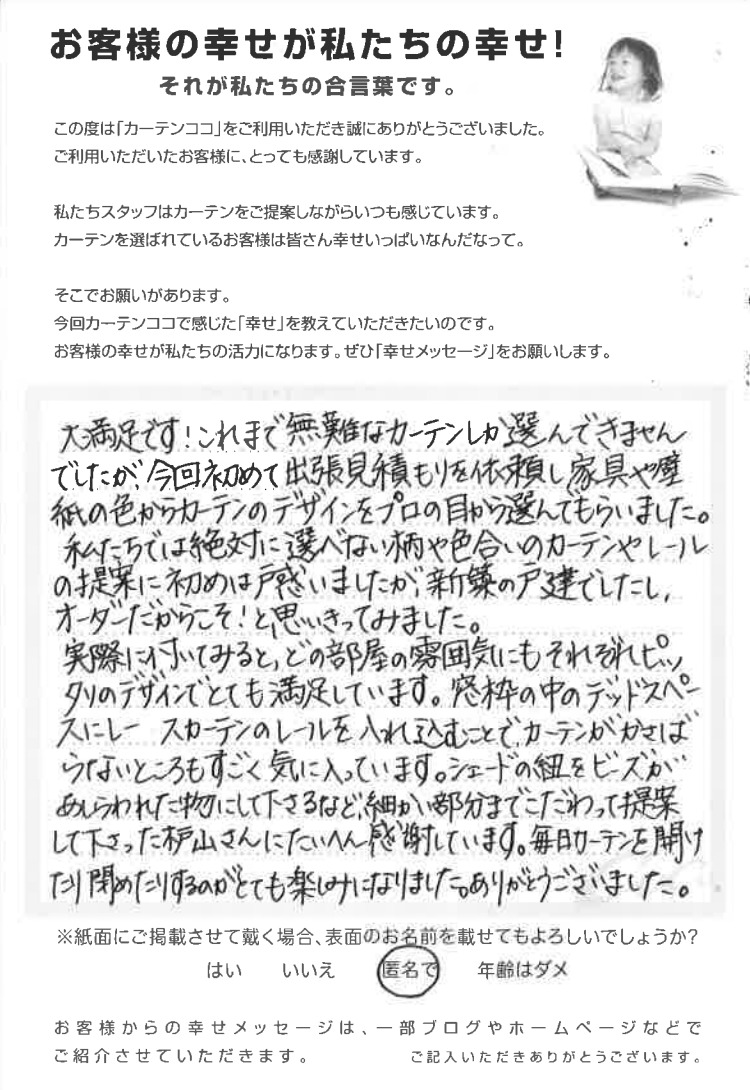 お客様の幸せが私たちの幸せ!
それが私たちの合言葉です。
この度は「カーテンココ」をご利用いただき誠にありがとうございました。
ご利用いただいたお客様に、とっても感謝しています。
私たちスタッフはカーテンをご提案しながらいつも感じています。
カーテンを選ばれているお客様は皆さん幸せいっぱいなんだなって。
そこでお願いがあります。
今回カーテンココで感じた「幸せ」を教えていただきたいのです。
お客様の幸せが私たちの活力になります。ぜひ「幸せメッセージ」をお願いします。
大満足です!これまで無難なカーテンしか選んできません
でしたが、今回初めて出張見積もりを依頼し、家具や壁
紙の色からカーテンのデザインをプロの目から選んでもらいました。
私たちでは絶対に選べない柄や色合いのカーテンやレール
の提案に初めは戸惑いましたが、新築の戸建でしたし、
オーダーだからこそ!と、思いきってみました。
実際に付いてみると、どの部屋の雰囲気にもそれぞれピッ
タリのデザインでとても満足しています。窓枠の中のデッドスペー
スにレースカーテンのレールを入れ込むことで、カーテンがかさば
らないところもすごく気に入っています。シェードの紐をビーズが
あしらわれた物にして下さるなど、細かい部分までこだわって提案
して下さった枦山さんにたいへん感謝しています。毎日カーテンを開け
たり閉めたりするのがとても楽しみになりました。ありがとうございました。
※紙面にご掲載させて戴く場合、表面のお名前を載せてもよろしいでしょうか?
はい いいえ 匿名で 年齢はダメ
お客様からの幸せメッセージは、一部ブログやホームページなどで
ご紹介させていただきます。 ご記入いただきありがとうございます。